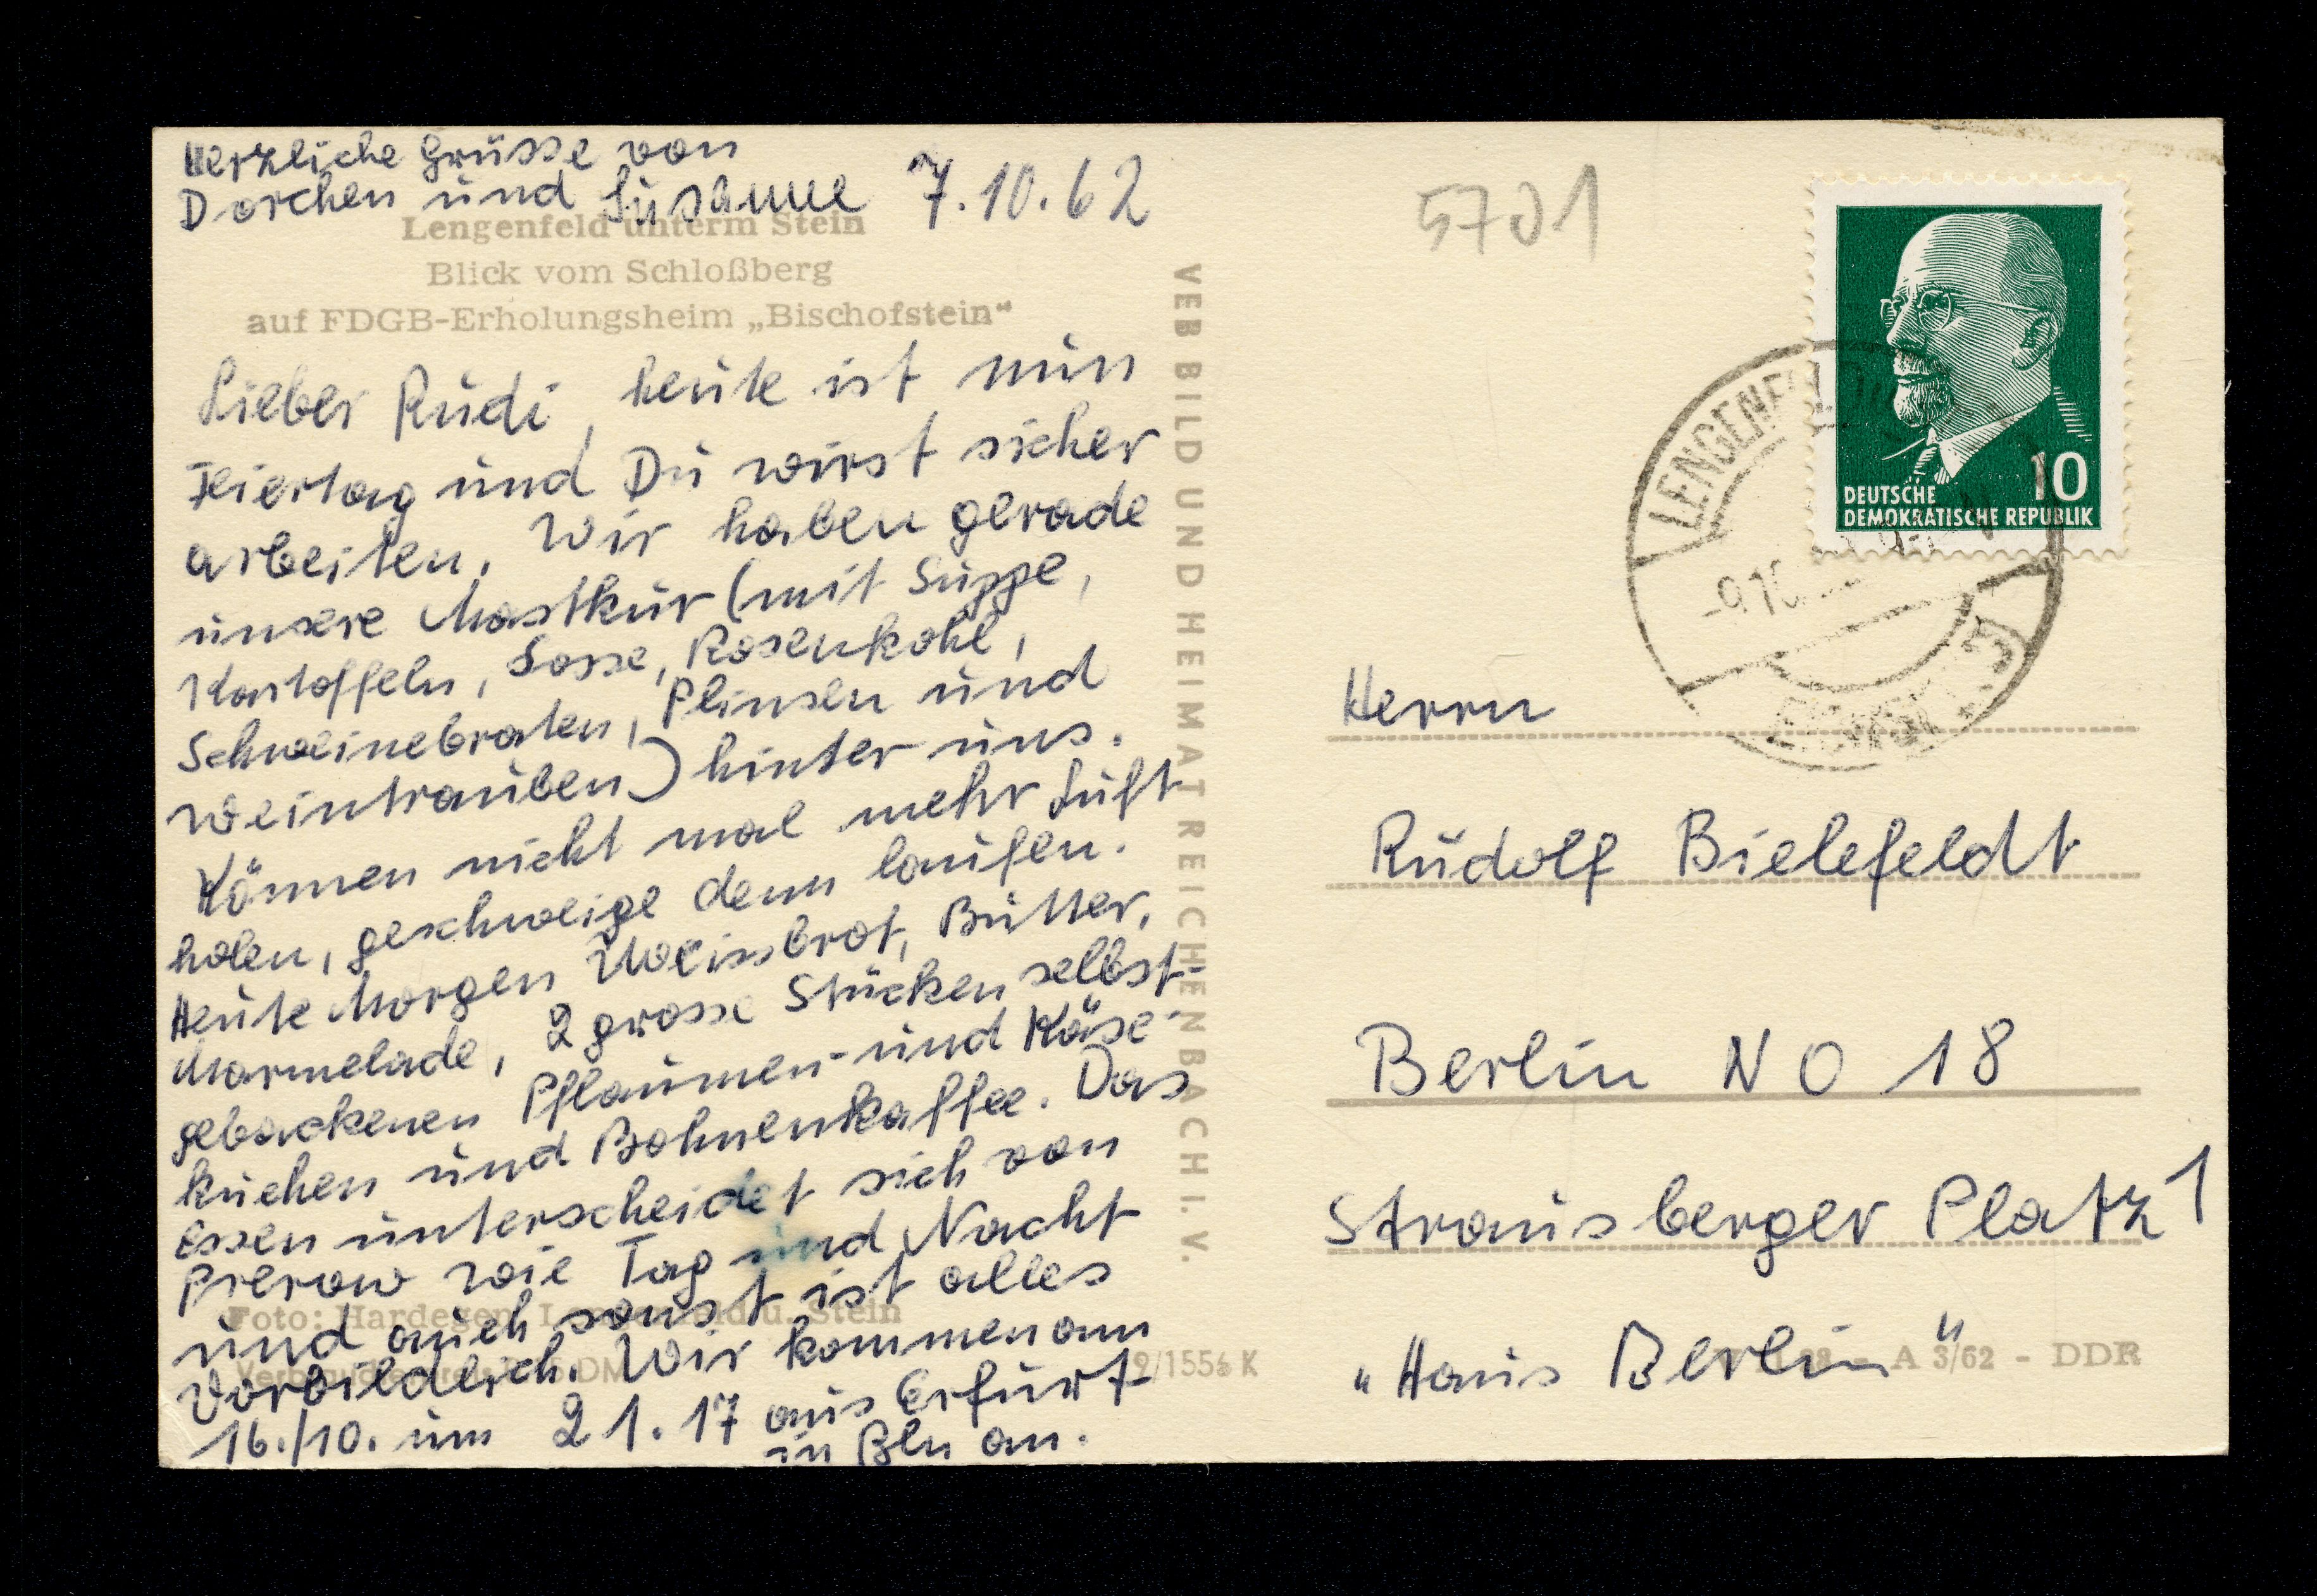 Herzliche Grüsse von
Dorchen und Susanne 7.10.62
Lengenfeld unterm Stein
Blick vom Schloßberg
auf FDGB-Erholungsheim „Bischofstein“
Lieber Rudi, heute ist nun
Feiertag und Du wirst sicher
arbeiten. Wir haben gerade
unsere Mastkur (mit Suppe,
Kartoffeln, Sosse, Rosenkohl,
Schweinebraten, Plinsen und
Weintrauben) hinter uns.
Können nicht mal mehr Luft
holen, geschweige denn laufen.
Heute Morgen Weissbrot, Butter,
Marmelade, 2 grosse Stücken selbst-
gebackenen Pflaumen- und Käse-
kuchen und Bohnenkaffee. Das
Essen unterscheidet sich von
Prerow wie Tag und Nacht
und auch sonst ist alles
vorbildlich. Wir kommen am
16./10. um 21.17 aus Erfurt
in Bln an.
Foto: Hardegen, Lengenfeld u. Stein
VEB BILD UND HEIMAT REICHENBACH I. V.
5701
DEUTSCHE
DEMOKRATISCHE REPUBLIK
10
-9.10
Herrn
Rudolf Bielefeldt
Berlin NO 18
Strausberger Platz 1
"Haus Berlin"
A 3/62 - DDR